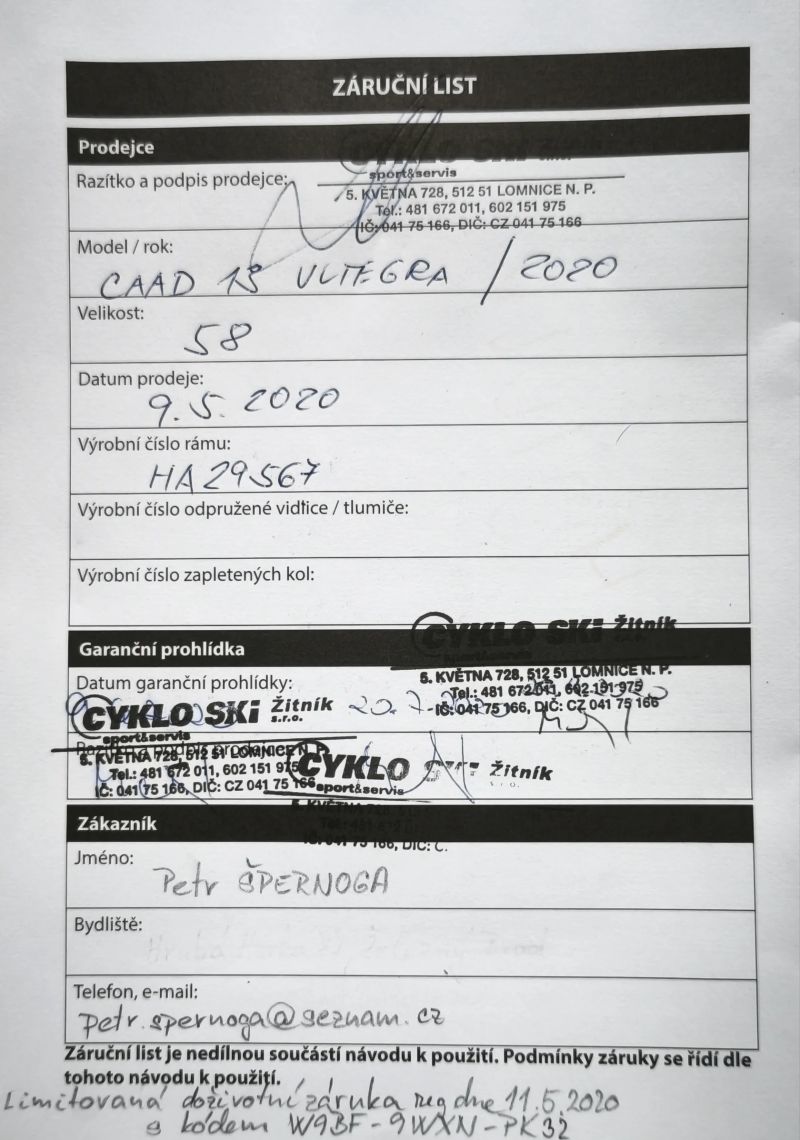 ZÁRUČNÍ LIST
Prodejce
CYKLO SKI
Razítko a podpis prodejce:
sport&servis
5. KVĚTNA 728, 512 51 LOMNICE N. P.
Tel.: 481 672 011, 602 151 975
IČ: 041 75 166, DIČ: CZ 041 75 166
Model / rok:
CAAD 13 ULTEGRA / 2020
Velikost:
58
Datum prodeje:
9.5. 2020
Výrobní číslo rámu:
HA29567
Výrobní číslo odpružené vidlice / tlumiče:
Výrobní číslo zapletených kol:
CYKLO SKI Žitník
Garanční prohlídka
Datum garanční prohlídky:
5. KVĚTNA 728, 512 51 LOMNICE N. P.
Tel.: 481 672 011, 602 151 975
IČ: 041 75 166, DIČ: CZ 041 75 166
CYKLO SKI Žitník
s.r.o.
20.7.
sport&servis
Razítko a podpis prodejce:
5. KVĚTNA 728, 512 51 LOMNICE N. P.
Tel.: 481 672 011, 602 151 975
IČ: 041 75 166, DIČ: CZ 041 75 166
CYKLO Žitník
sport&servis
Zákazník
Jméno:
Petr ŠPERNOGA
Bydliště:
Telefon, e-mail:
petr.spernoga@seznam.cz
Záruční list je nedílnou součástí návodu k použití. Podmínky záruky se řídí dle
tohoto návodu k použití.
Limitovaná doživotní záruka reg dne 11.5.2020
s kódem W9BF-9WXN-PK32